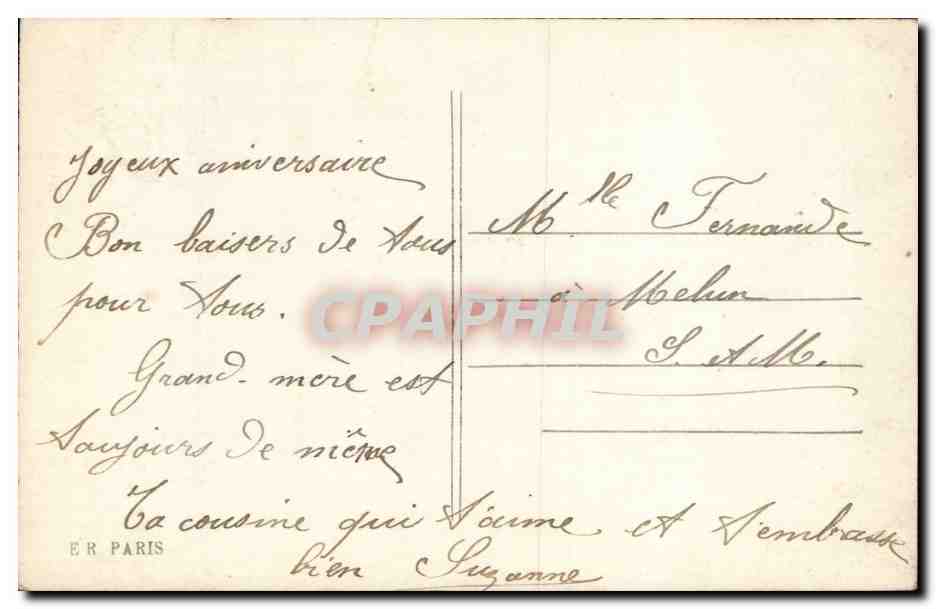 Joyeux aniversaire
Bon baisers de tous
pour tous.
Grand-mère est
toujours de même
Ta cousine qui t'aime et t'embrasse
bien Suzanne
Mlle Fernande
à Melun
S. et M.
E R PARIS
CPAPHIL